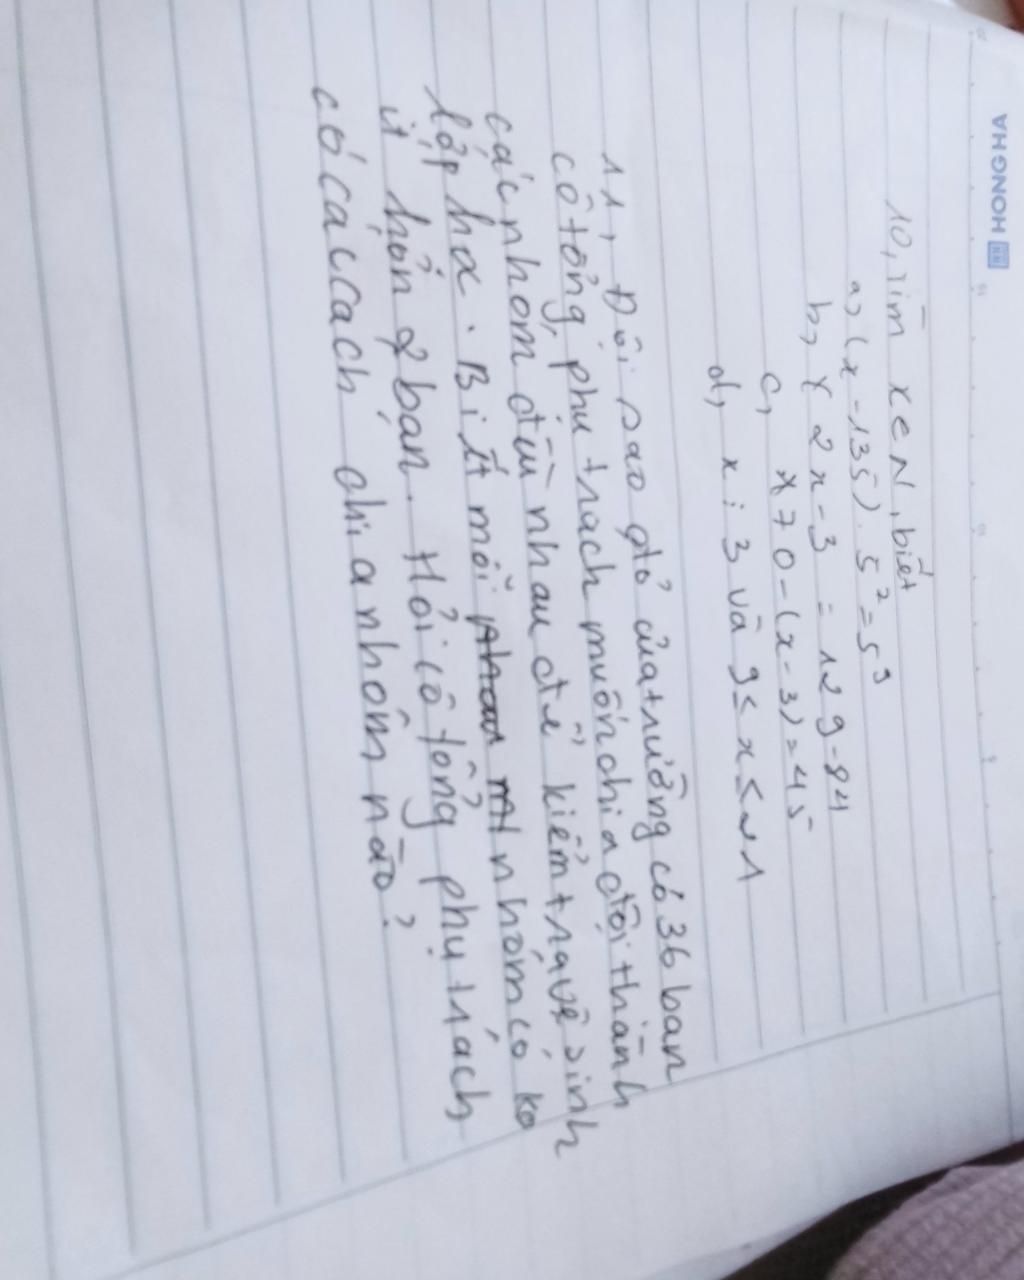 HONG HA
10, Tìm x ∈ N, biết
a, (x - 135). 5² = 5³
b, 2x - 3 = 129 - 84
c, x70 - (x - 3) = 45
d, x ⋮ 3 và 9 ≤ x ≤ 21
11, Đội sao đỏ của trường có 36 bạn
cô tổng phụ trách muốn chia đội thành
các nhóm đều nhau để kiểm tra vệ sinh
lớp học. Biết mỗi nhóm có ko
ít hơn 2 bạn. Hỏi cô tổng phụ trách
có các cách chia nhóm nào?